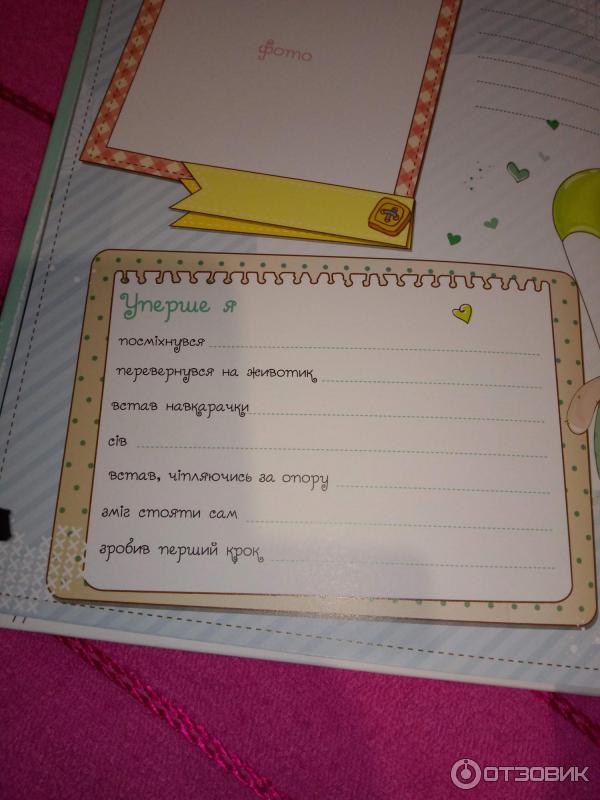 фото
Уперше я
посміхнувся
перевернувся на животик
встав навкарачки
сів
встав, чіпляючись за опору
зміг стояти сам
зробив перший крок
ОТЗОВИК